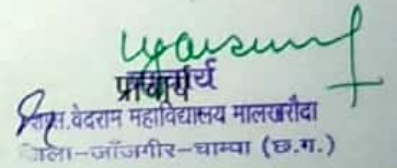 प्राचार्य
शास.वेदराम महाविद्यालय मालखरौदा
जिला-जाँजगीर-चाम्पा (छ.ग.)